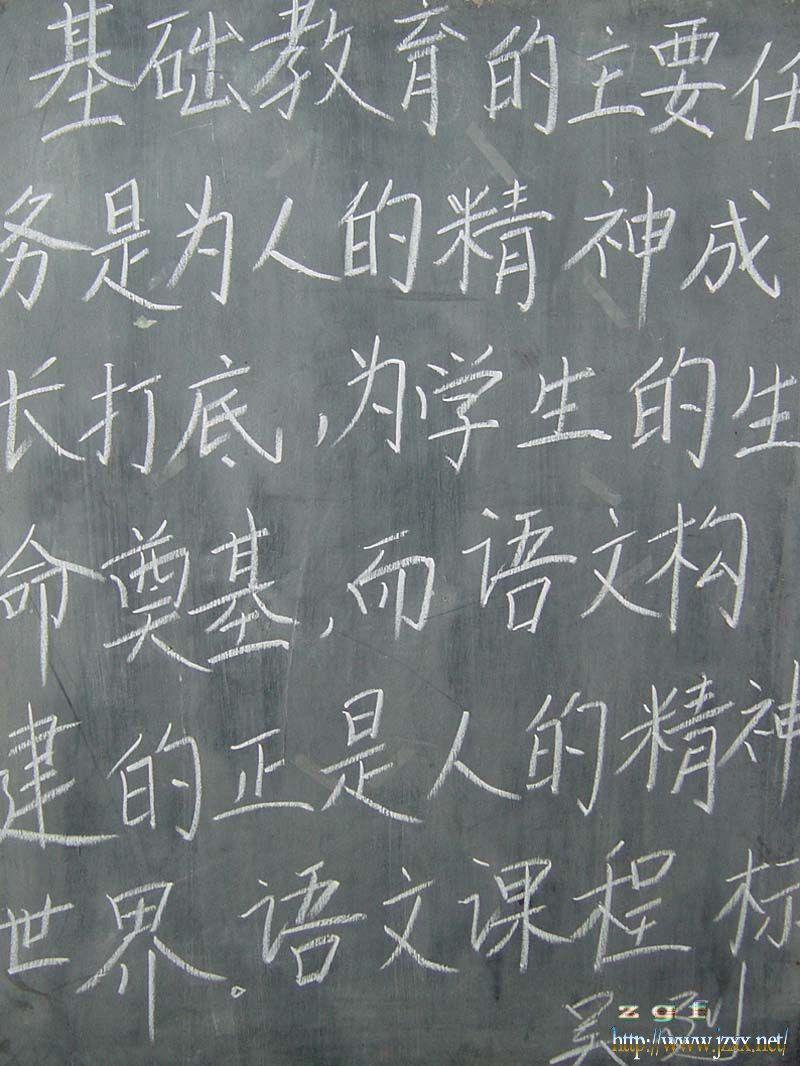 基础教育的主要任
务是为人的精神成
长打底，为学生的生
命奠基，而语文构
建的正是人的精神
世界。语文课程标
吴
zgf
http://www.jzxx.net/